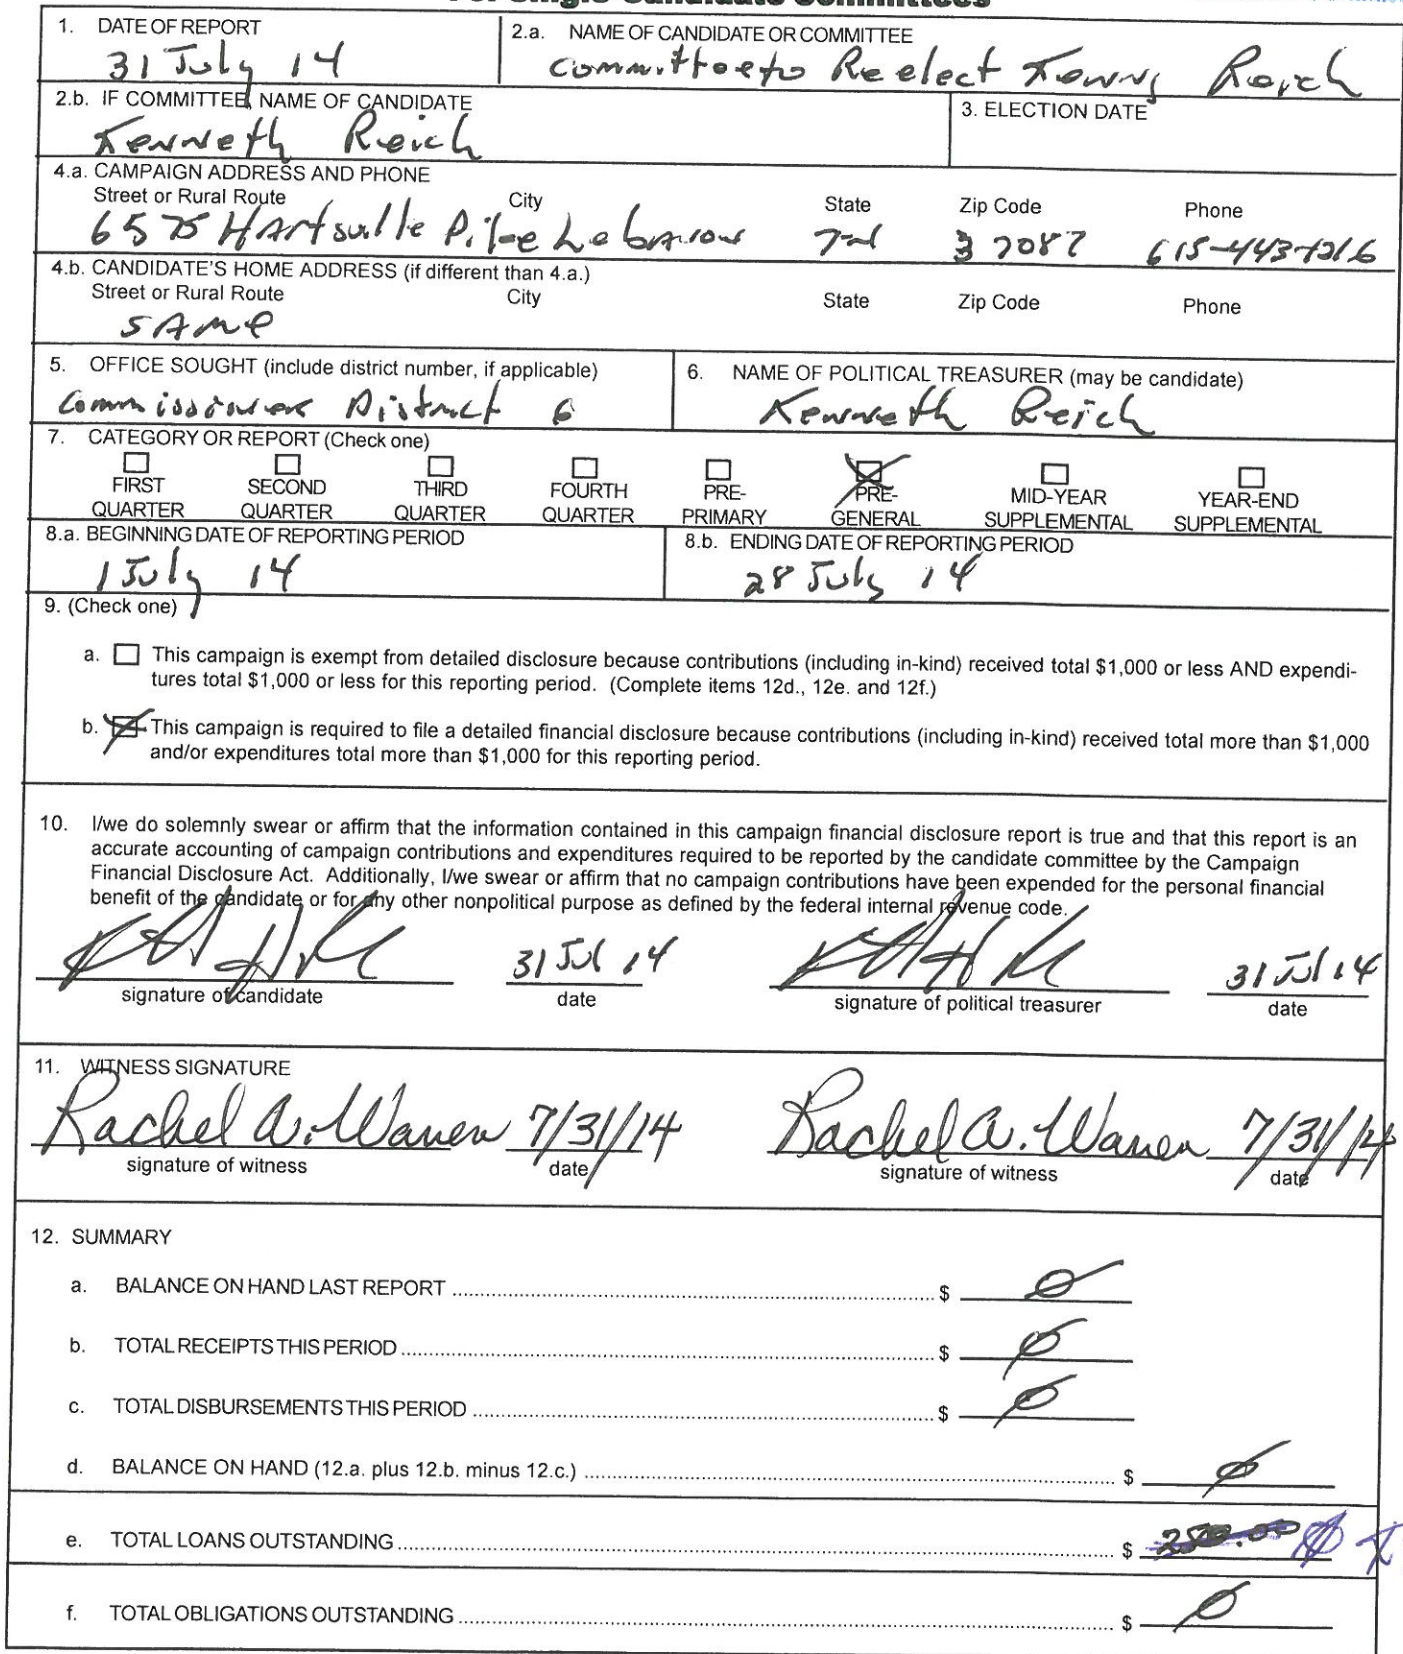 For Single Candidate Committees
1. DATE OF REPORT
31 July 14
2.a. NAME OF CANDIDATE OR COMMITTEE
Committee to Reelect Kenny Reich
2.b. IF COMMITTEE, NAME OF CANDIDATE
Kenneth Reich
3. ELECTION DATE
4.a. CAMPAIGN ADDRESS AND PHONE
Street or Rural Route City State Zip Code Phone
6575 Hartsville Pike Lebanon Tn 37087 615-443-1216
4.b. CANDIDATE'S HOME ADDRESS (if different than 4.a.)
Street or Rural Route City State Zip Code Phone
SAME
5. OFFICE SOUGHT (include district number, if applicable)
Commissioner District 6
6. NAME OF POLITICAL TREASURER (may be candidate)
Kenneth Reich
7. CATEGORY OR REPORT (Check one)
FIRST QUARTER
SECOND QUARTER
THIRD QUARTER
FOURTH QUARTER
PRE-PRIMARY
PRE-GENERAL
MID-YEAR SUPPLEMENTAL
YEAR-END SUPPLEMENTAL
8.a. BEGINNING DATE OF REPORTING PERIOD
1 July 14
8.b. ENDING DATE OF REPORTING PERIOD
28 July 14
9. (Check one)
a. This campaign is exempt from detailed disclosure because contributions (including in-kind) received total $1,000 or less AND expendi-
tures total $1,000 or less for this reporting period. (Complete items 12d., 12e. and 12f.)
b. This campaign is required to file a detailed financial disclosure because contributions (including in-kind) received total more than $1,000
and/or expenditures total more than $1,000 for this reporting period.
10. I/we do solemnly swear or affirm that the information contained in this campaign financial disclosure report is true and that this report is an
accurate accounting of campaign contributions and expenditures required to be reported by the candidate committee by the Campaign
Financial Disclosure Act. Additionally, I/we swear or affirm that no campaign contributions have been expended for the personal financial
benefit of the candidate or for any other nonpolitical purpose as defined by the federal internal revenue code.
31 Jul 14 31 Jul 14
signature of candidate date signature of political treasurer date
11. WITNESS SIGNATURE
Rachel A. Warren 7/31/14 Rachel A. Warren 7/31/14
signature of witness date signature of witness date
12. SUMMARY
a. BALANCE ON HAND LAST REPORT $ Ø
b. TOTAL RECEIPTS THIS PERIOD $ Ø
c. TOTAL DISBURSEMENTS THIS PERIOD $ Ø
d. BALANCE ON HAND (12.a. plus 12.b. minus 12.c.) $ Ø
e. TOTAL LOANS OUTSTANDING $ Ø
f. TOTAL OBLIGATIONS OUTSTANDING $ Ø